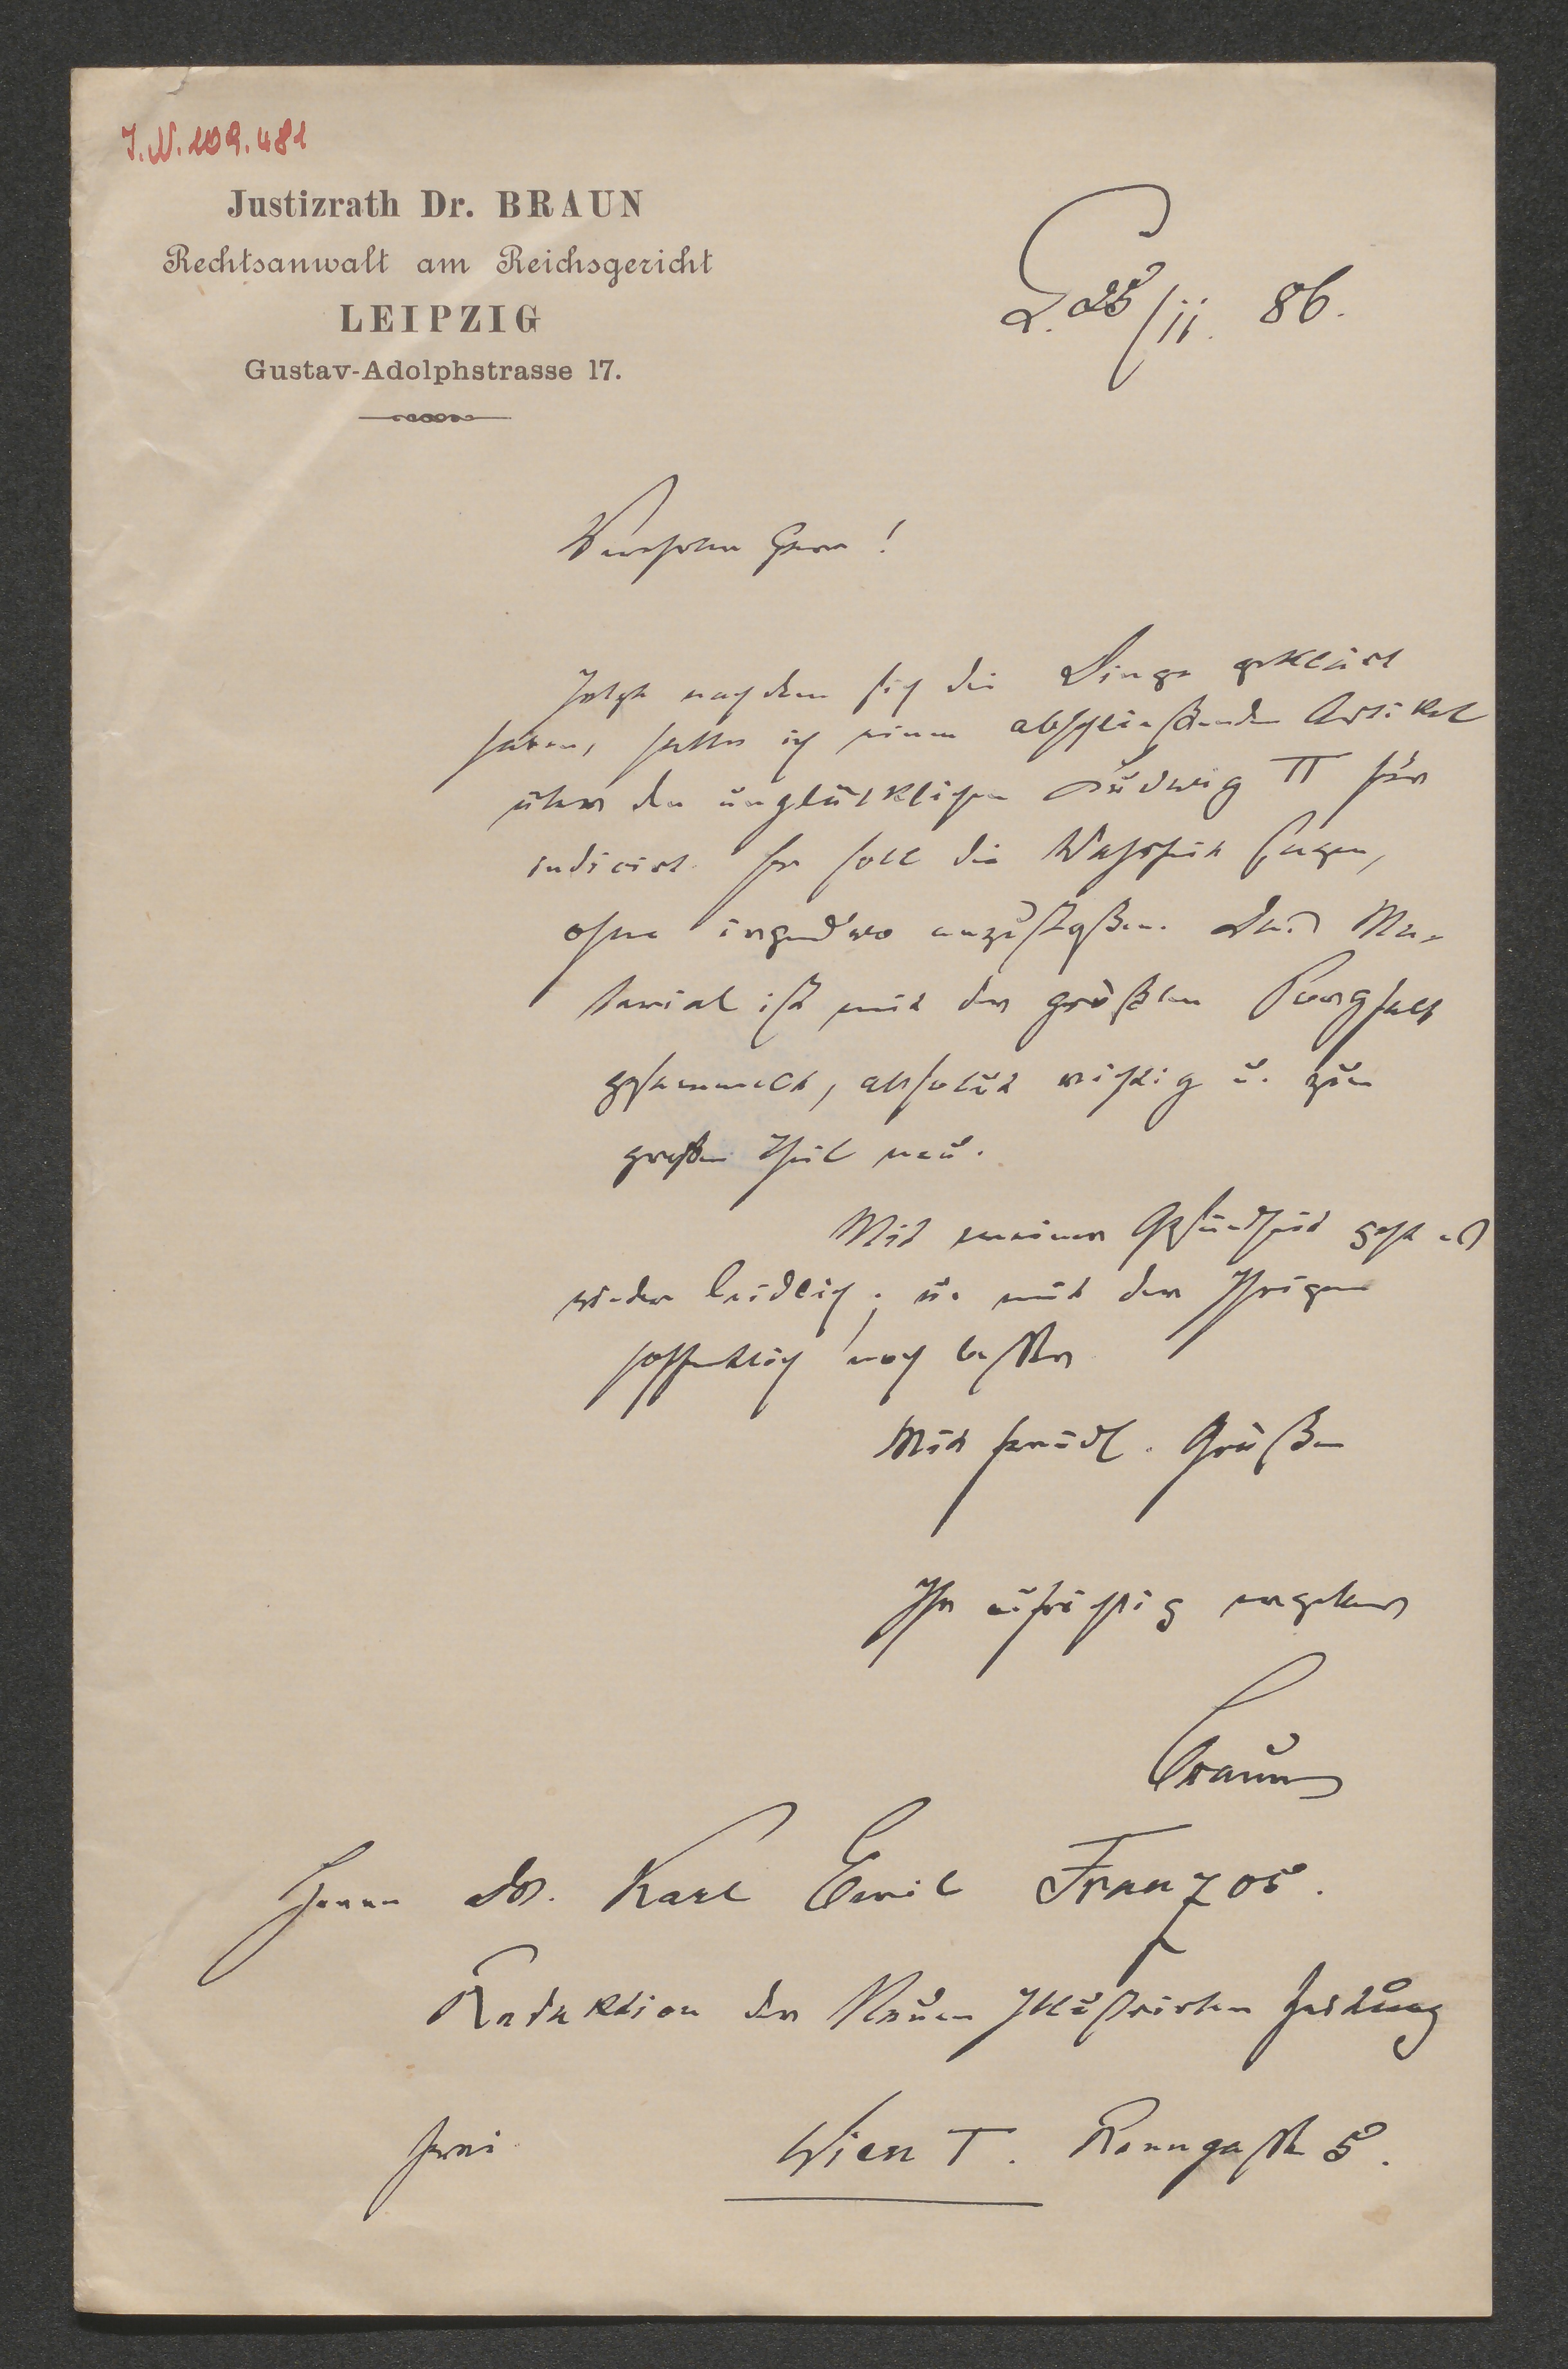 J.N. 109.481
Justizrath Dr. BRAUN
Rechtsanwalt am Reichsgericht
LEIPZIG
Gustav-Adolphstrasse 17.
L. /11. 86.
Verehrter Herr!
Jetzt nachdem sich die Dinge geklärt
haben, halte ich einen abschließenden Artikel
über den unglücklichen Ludwig II für
indicirt. Er soll die Wahrheit sagen,
ohne irgendwo anzustoßen. Das Ma-
terial ist mit der größten Sorgfalt
gesammelt, absolut richtig u. zum
großen Theil neu.
Mit meiner Gesundheit geht es
wieder leidlich; u. mit der Ihrigen
hoffentlich noch besser
Mit freundl. Grüßen
Ihr aufrichtig ergebener
Braun
Herrn Dr. Karl Emil Franzos.
Redaktion der Neuen Illustrirten Zeitung
frei Wien I. 5.